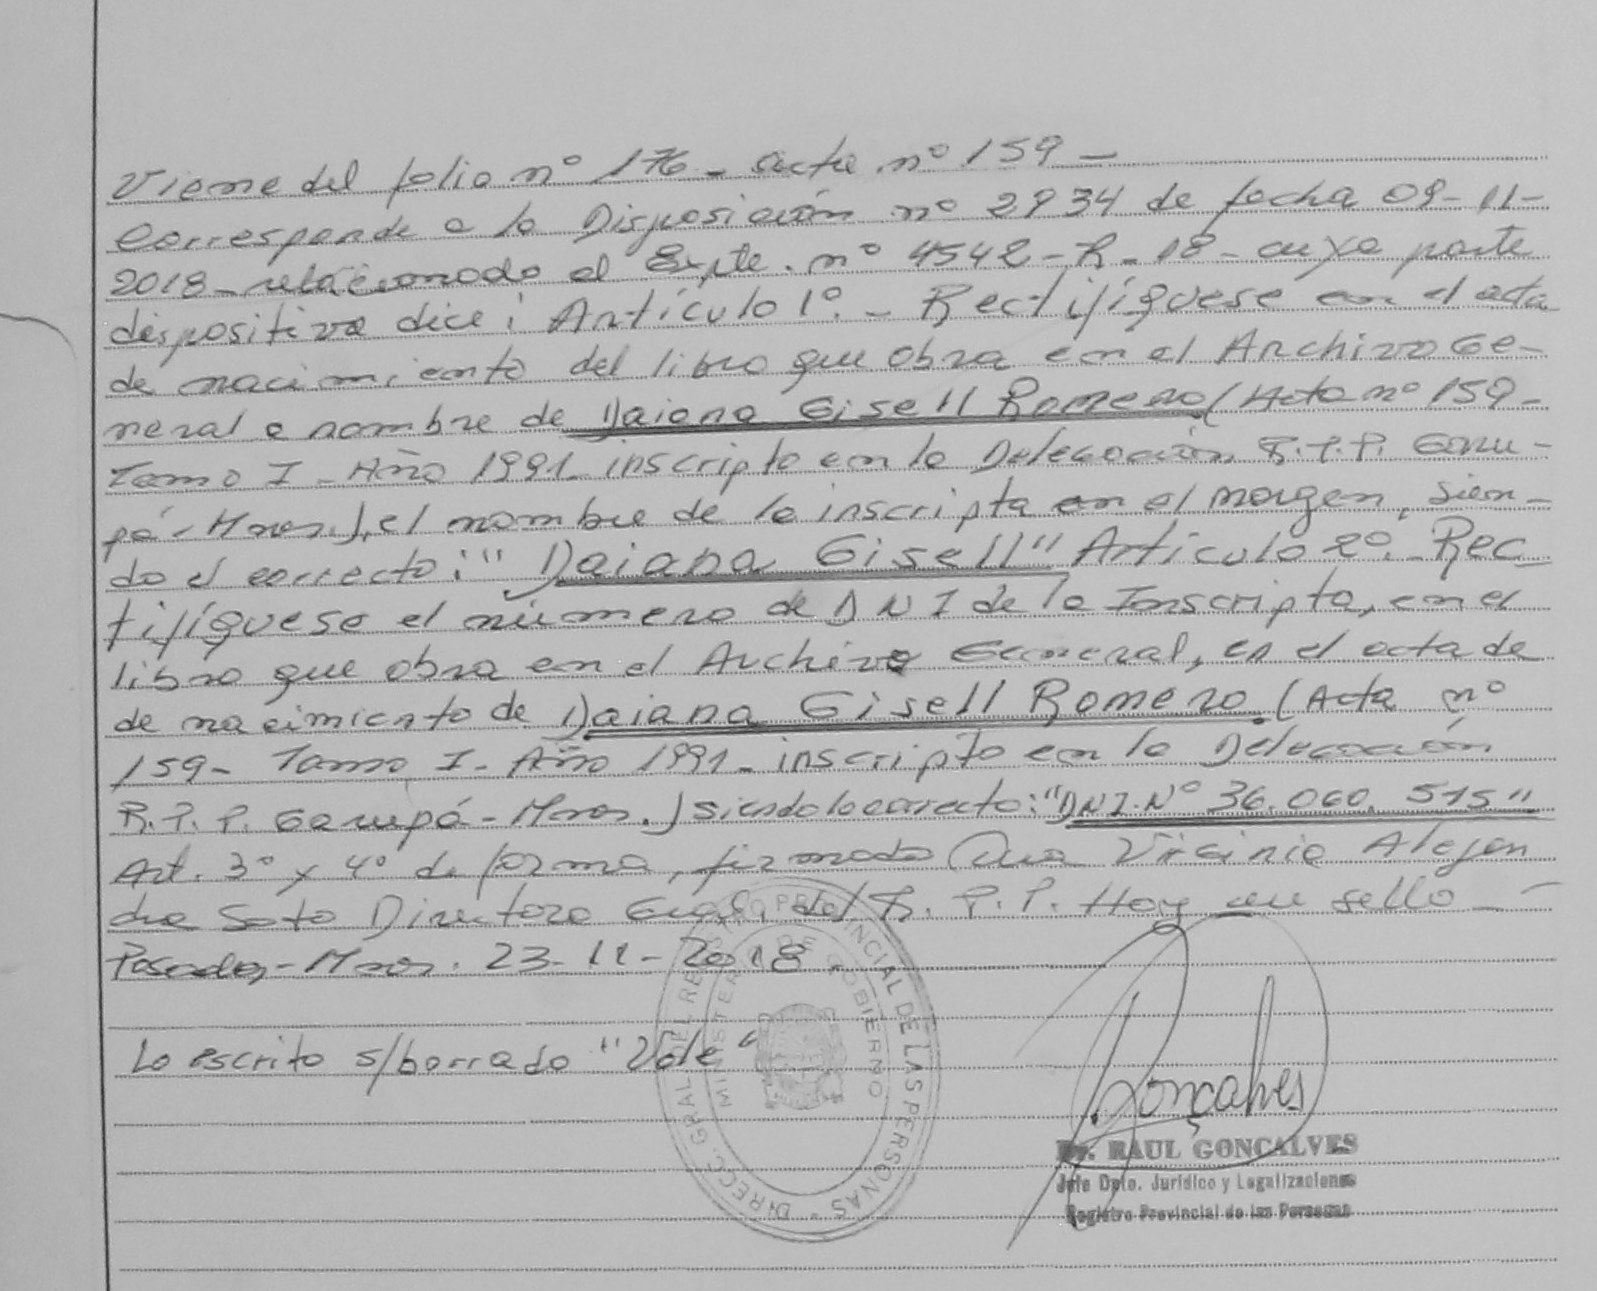 Viene del folio nº 176 - acta nº 159 -
Corresponde a la Disposición nº 2934 de fecha 09-11-
2018 - relacionado al Expte. nº 4542 - R - 18 - cuya parte
dispositiva dice: Artículo 1º. - Rectifíquese en el acta
de nacimiento del libro que obra en el Archivo Ge-
neral a nombre de Daiana Gisell Romero (Acta nº 159 -
Tomo I - Año 1991 - inscripto en la Delegación R.P.P. Garu-
pá - Mnes.), el nombre de la inscripta en el margen, sien-
do el correcto: "Daiana Gisell" Artículo 2º. - Rec
tifíquese el número de DNI de la Inscripta, en el
libro que obra en el Archivo General, en el acta de
de nacimiento de Daiana Gisell Romero. (Acta nº
159 - Tomo I - Año 1991 - inscripto en la Delegación
R.P.P. Garupá - Mnes.) siendo lo correcto: "DNI. Nº 36.060.515"
Art. 3º y 4º de forma, firmado Dra Virginia Alejan
dra Soto Directora Gral. del R.P.P. Hay un sello -
Posadas - Mnes. 23 - 11 - 2018.
Lo escrito s/borrado "Vale"
DIRECC. GRAL. DEL REGISTRO PROVINCIAL DE LAS PERSONAS
MINISTERIO DE GOBIERNO
R. Gonçalves
Dr. RAUL GONCALVES
Jefe Dpto. Jurídico y Legalizaciones
Registro Provincial de las Personas